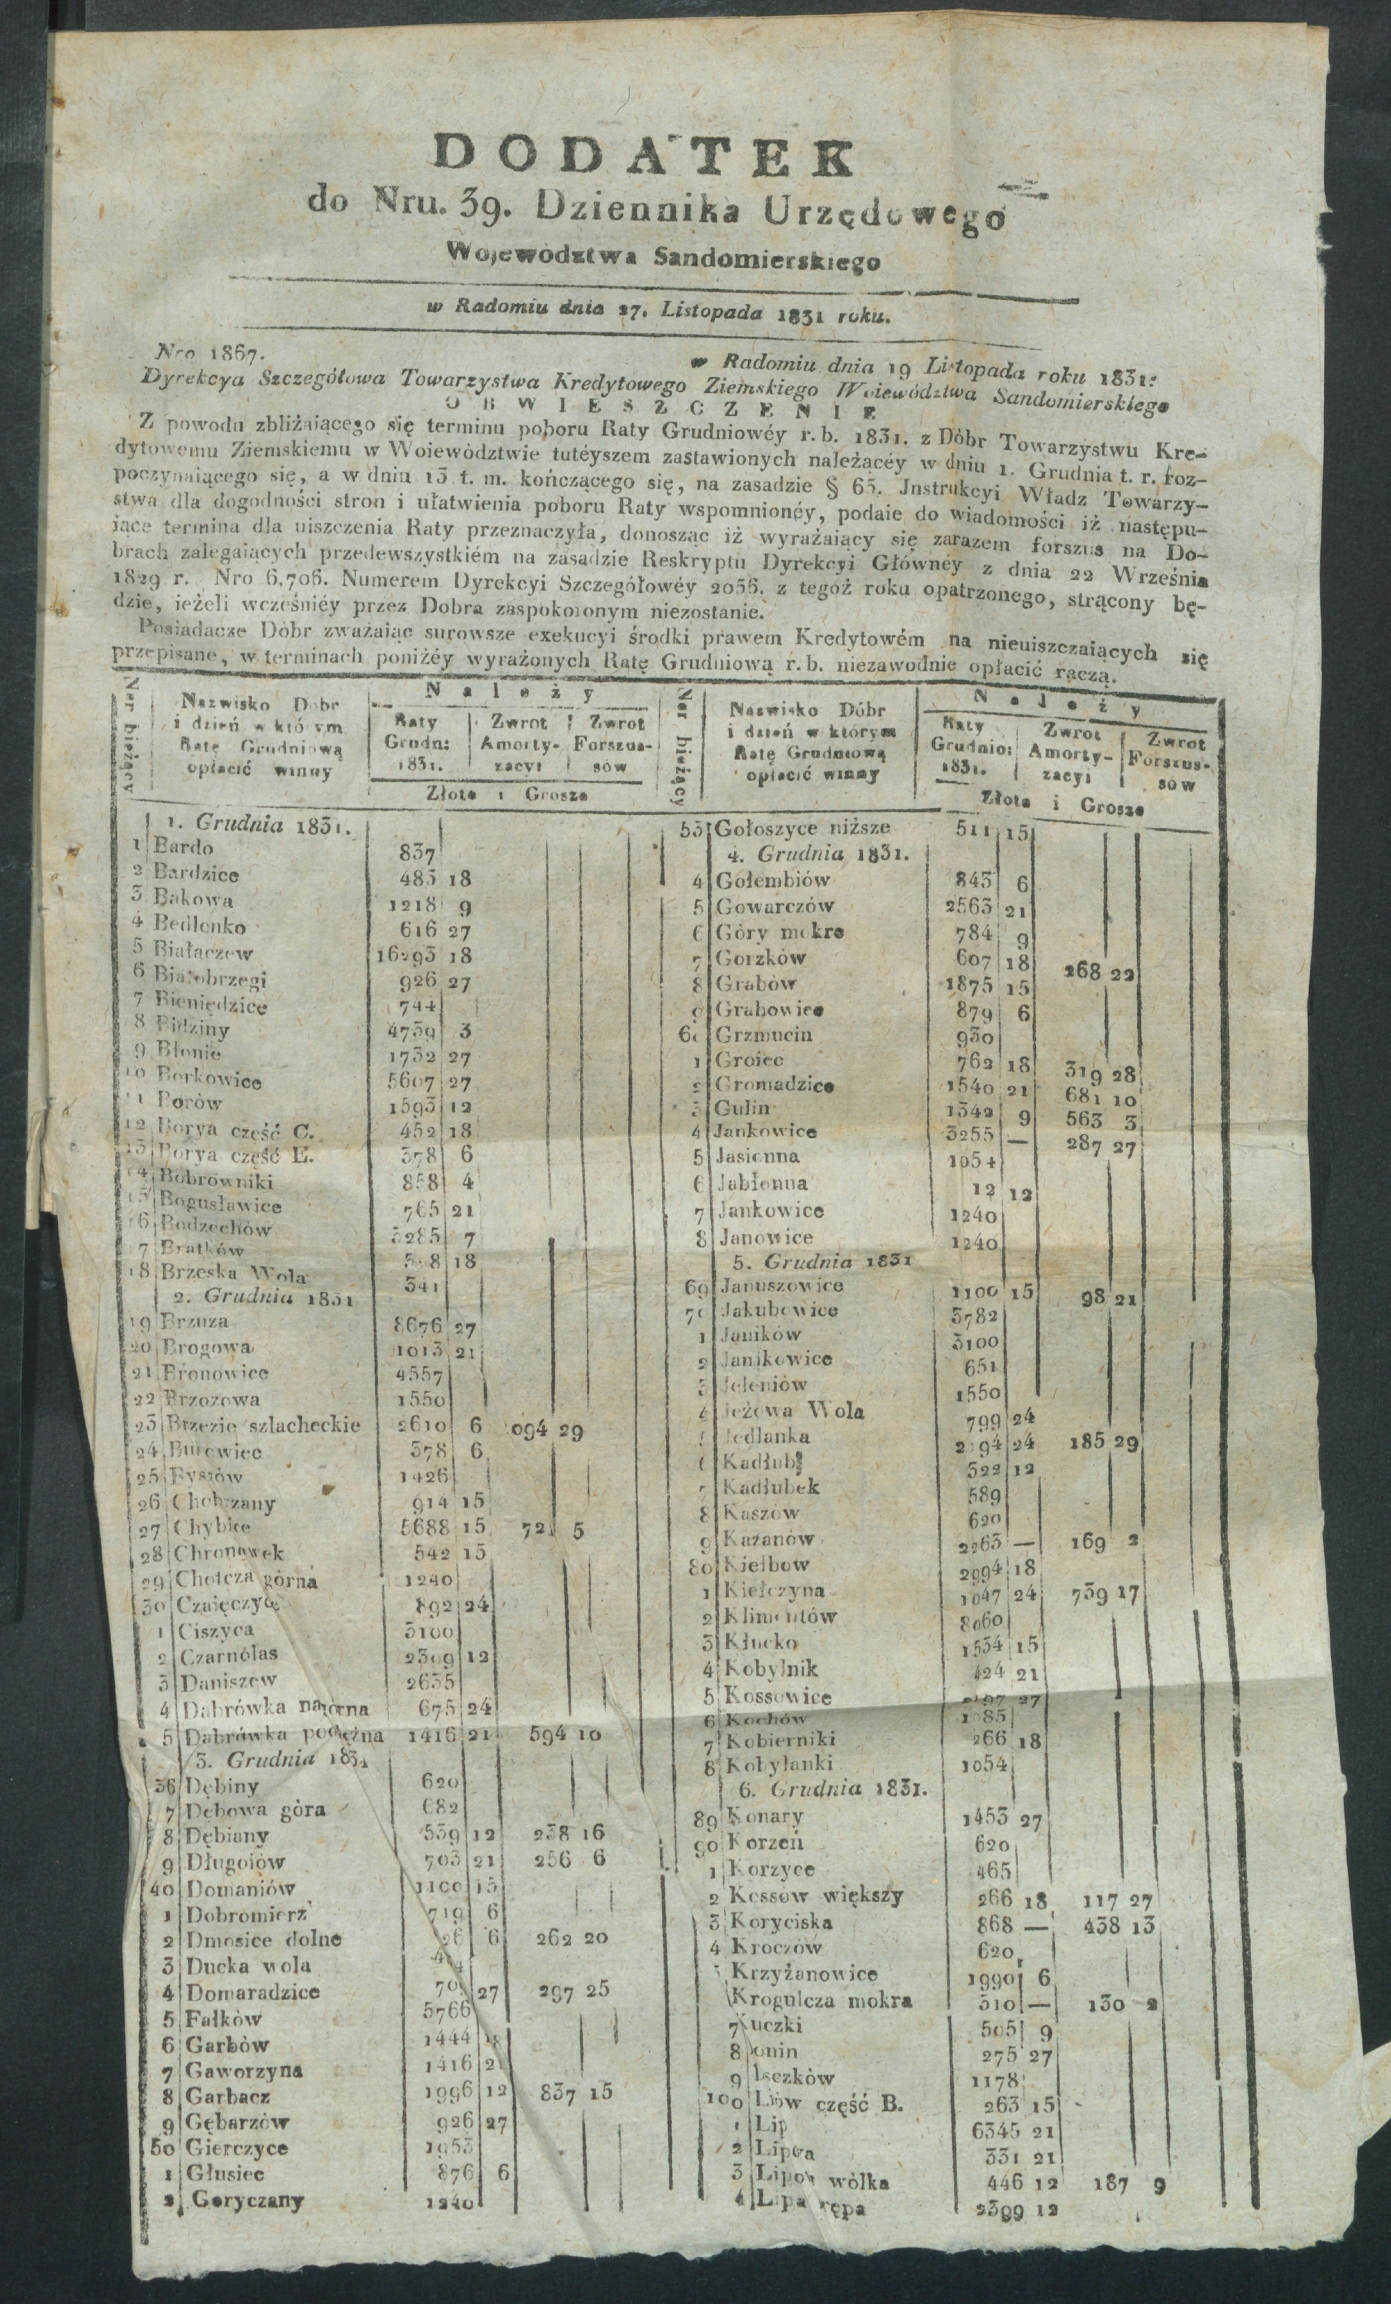 DODATEK
do Nru. 39. Dziennika Urzędowego
Województwa Sandomierskiego
w Radomiu dnia 27. Listopada 1831 roku.
Nro 1867.
w Radomiu dnia 19 Listopada roku 1831.
Dyrekcya Szczegółowa Towarzystwa Kredytowego Ziemskiego Woiewództwa Sandomierskiego
OBWIESZCZENIE
Z powodu zbliżaiącego się terminu poboru Raty Grudniowéy r. b. 1831. z Dóbr Towarzystwu Kre-
dytowemu Ziemskiemu w Woiewództwie tutéyszem zastawionych należącéy w dniu 1. Grudnia t. r. roz-
poczynaiącego się, a w dniu 15 t. m. kończącego się, na zasadzie § 65. Jnstrukcyi Władz Towarzy-
stwa dla dogodności stron i ułatwienia poboru Raty wspomnionéy, podaie do wiadomości iż następu-
iące termina dla uiszczenia Raty przeznaczyła, donosząc iż wyrażaiący się zarazem forszus na Do-
brach zalegaiących przedewszystkiém na zasadzie Reskryptu Dyrekcyi Główney z dnia 22 Września
1829 r. Nro 6,706. Numerem Dyrekcyi Szczegółowéy 2056. z tegóż roku opatrzonego, strącony bę-
dzie, ieżeli wcześniéy przez Dobra zaspokoionym niezostanie.
Posiadacze Dóbr zważaiąc surowsze exekucyi środki prawem Kredytowém na nieuiszczaiących się
przepisane, w terminach poniżéy wyrażonych Ratę Grudniową r. b. niezawodnie opłacić raczą.
Ner bieżący
Nazwisko Dóbr
i dzień w którym
Ratę Grudniową
opłacić winny
Należy
Raty
Grudn:
1831.
Zwrot
Amorty-
zacyi
Zwrot
Forszus-
sów
Złote i Grosze
1. Grudnia 1831.
1 Bardo 837
2 Bardzice 483 18
3 Bakowa 1218 9
4 Bedlenko 616 27
5 Białaczew 16293 18
6 Białobrzegi 926 27
7 Bieniędzice 744
8 Bidziny 4739 3
9 Błonie 1732 27
10 Borkowice 5607 27
11 Borów 1593 12
12 Borya część C. 452 18
13 Borya część E. 378 6
14 Bobrowniki 858 4
15 Bogusławice 765 21
16 Bodzechów 3285 7
17 Bratków 18
18 Brzeska Wola 341
2. Grudnia 1831
19 Brzuza 8676 27
20 Brogowa 1013 21
21 Bronowice 4557
22 Brzozowa 1550
23 Brzezie szlacheckie 2610 6 094 29
24 Burowiec 378 6
25 Byszów 1426
26 Chobrzany 914 15
27 Chybice 5688 15 721 5
28 Chronowek 542 15
29 Chotcza górna 1240
30 Czaięczyce 892 24
1 Ciszyca 3100
2 Czarnolas 2309 12
3 Daniszew 2635
4 Dabrówka nagórna 675 24
5 Dabrówka podłężna 1416 21 594 10
3. Grudnia 1831
36 Dębiny 620
7 Dębowa góra 682
8 Dębiany 539 12 238 16
9 Długoiów 703 21 256 6
40 Domaniów 1100 15
1 Dobromierz 719 6
2 Dmosice dolne 26 6 262 20
3 Ducka wola
4 Domaradzice 27 297 25
5 Fałków 5766
6 Garbów 1444
7 Gaworzyna 1416 21
8 Garbacz 1996 12 837 15
9 Gębarzów 926 27
50 Gierczyce 1953
1 Głusiec 876 6
2 Goryczany 1240
Ner bieżący
Nazwisko Dóbr
i dzień w którym
Ratę Grudniową
opłacić winny
Należy
Raty
Grudnio:
1831.
Zwrot
Amorty-
zacyi
Zwrot
Forszus-
sów
Złote i Grosze
53 Gołoszyce niższe 511 15
4. Grudnia 1831.
4 Gołembiów 843 6
5 Gowarczów 2563 21
6 Góry mokre 784 9
7 Gorzków 607 18 268 22
8 Grabów 1875 15
9 Grabowice 879 6
60 Grzmucin 930
1 Groiec 762 18 319 28
2 Gromadzice 1540 21 681 10
3 Gulin 1342 9 563 3
4 Jankowice 3255 — 287 27
5 Jasienna 1054
6 Jabłonna 12 12
7 Jankowice 1240
8 Janowice 1240
5. Grudnia 1831
69 Januszowice 1100 15 98 21
70 Jakubowice 3782
1 Janików 3100
2 Janikowice 651
3 Jeleniów 1550
4 Jeżowa Wola 799 24
Jedlanka 2194 24 185 29
6 Kadłub 322 12
7 Kadłubek 589
8 Kaszów 620
9 Kazanów 2263 — 169 2
80 Kiełbow 2994 18
1 Kiełczyna 1047 24 739 17
2 Klimontów 8060
3 Kłucko 1534 15
4 Kobylnik 424 21
5 Kossowice 27
6 Kochów 1085
7 Kobierniki 266 18
8 Kobylanki 1054
6. Grudnia 1831.
89 Konary 1453 27
90 Korzeń 620
1 Korzyce 465
2 Kossow większy 266 18 117 27
3 Koryciska 868 — 438 13
4 Kroczów 620
Krzyżanowice 1990 6
Krogulcza mokra 310 — 130 2
7 Kuczki 505 9
8 onin 275 27
9 czków 1178
100 Lów część B. 263 15
1 Lip 6345 21
2 Lipowa 331 21
3 Lipow wólka 446 12 187 9
4 Lipa rępa 2399 12